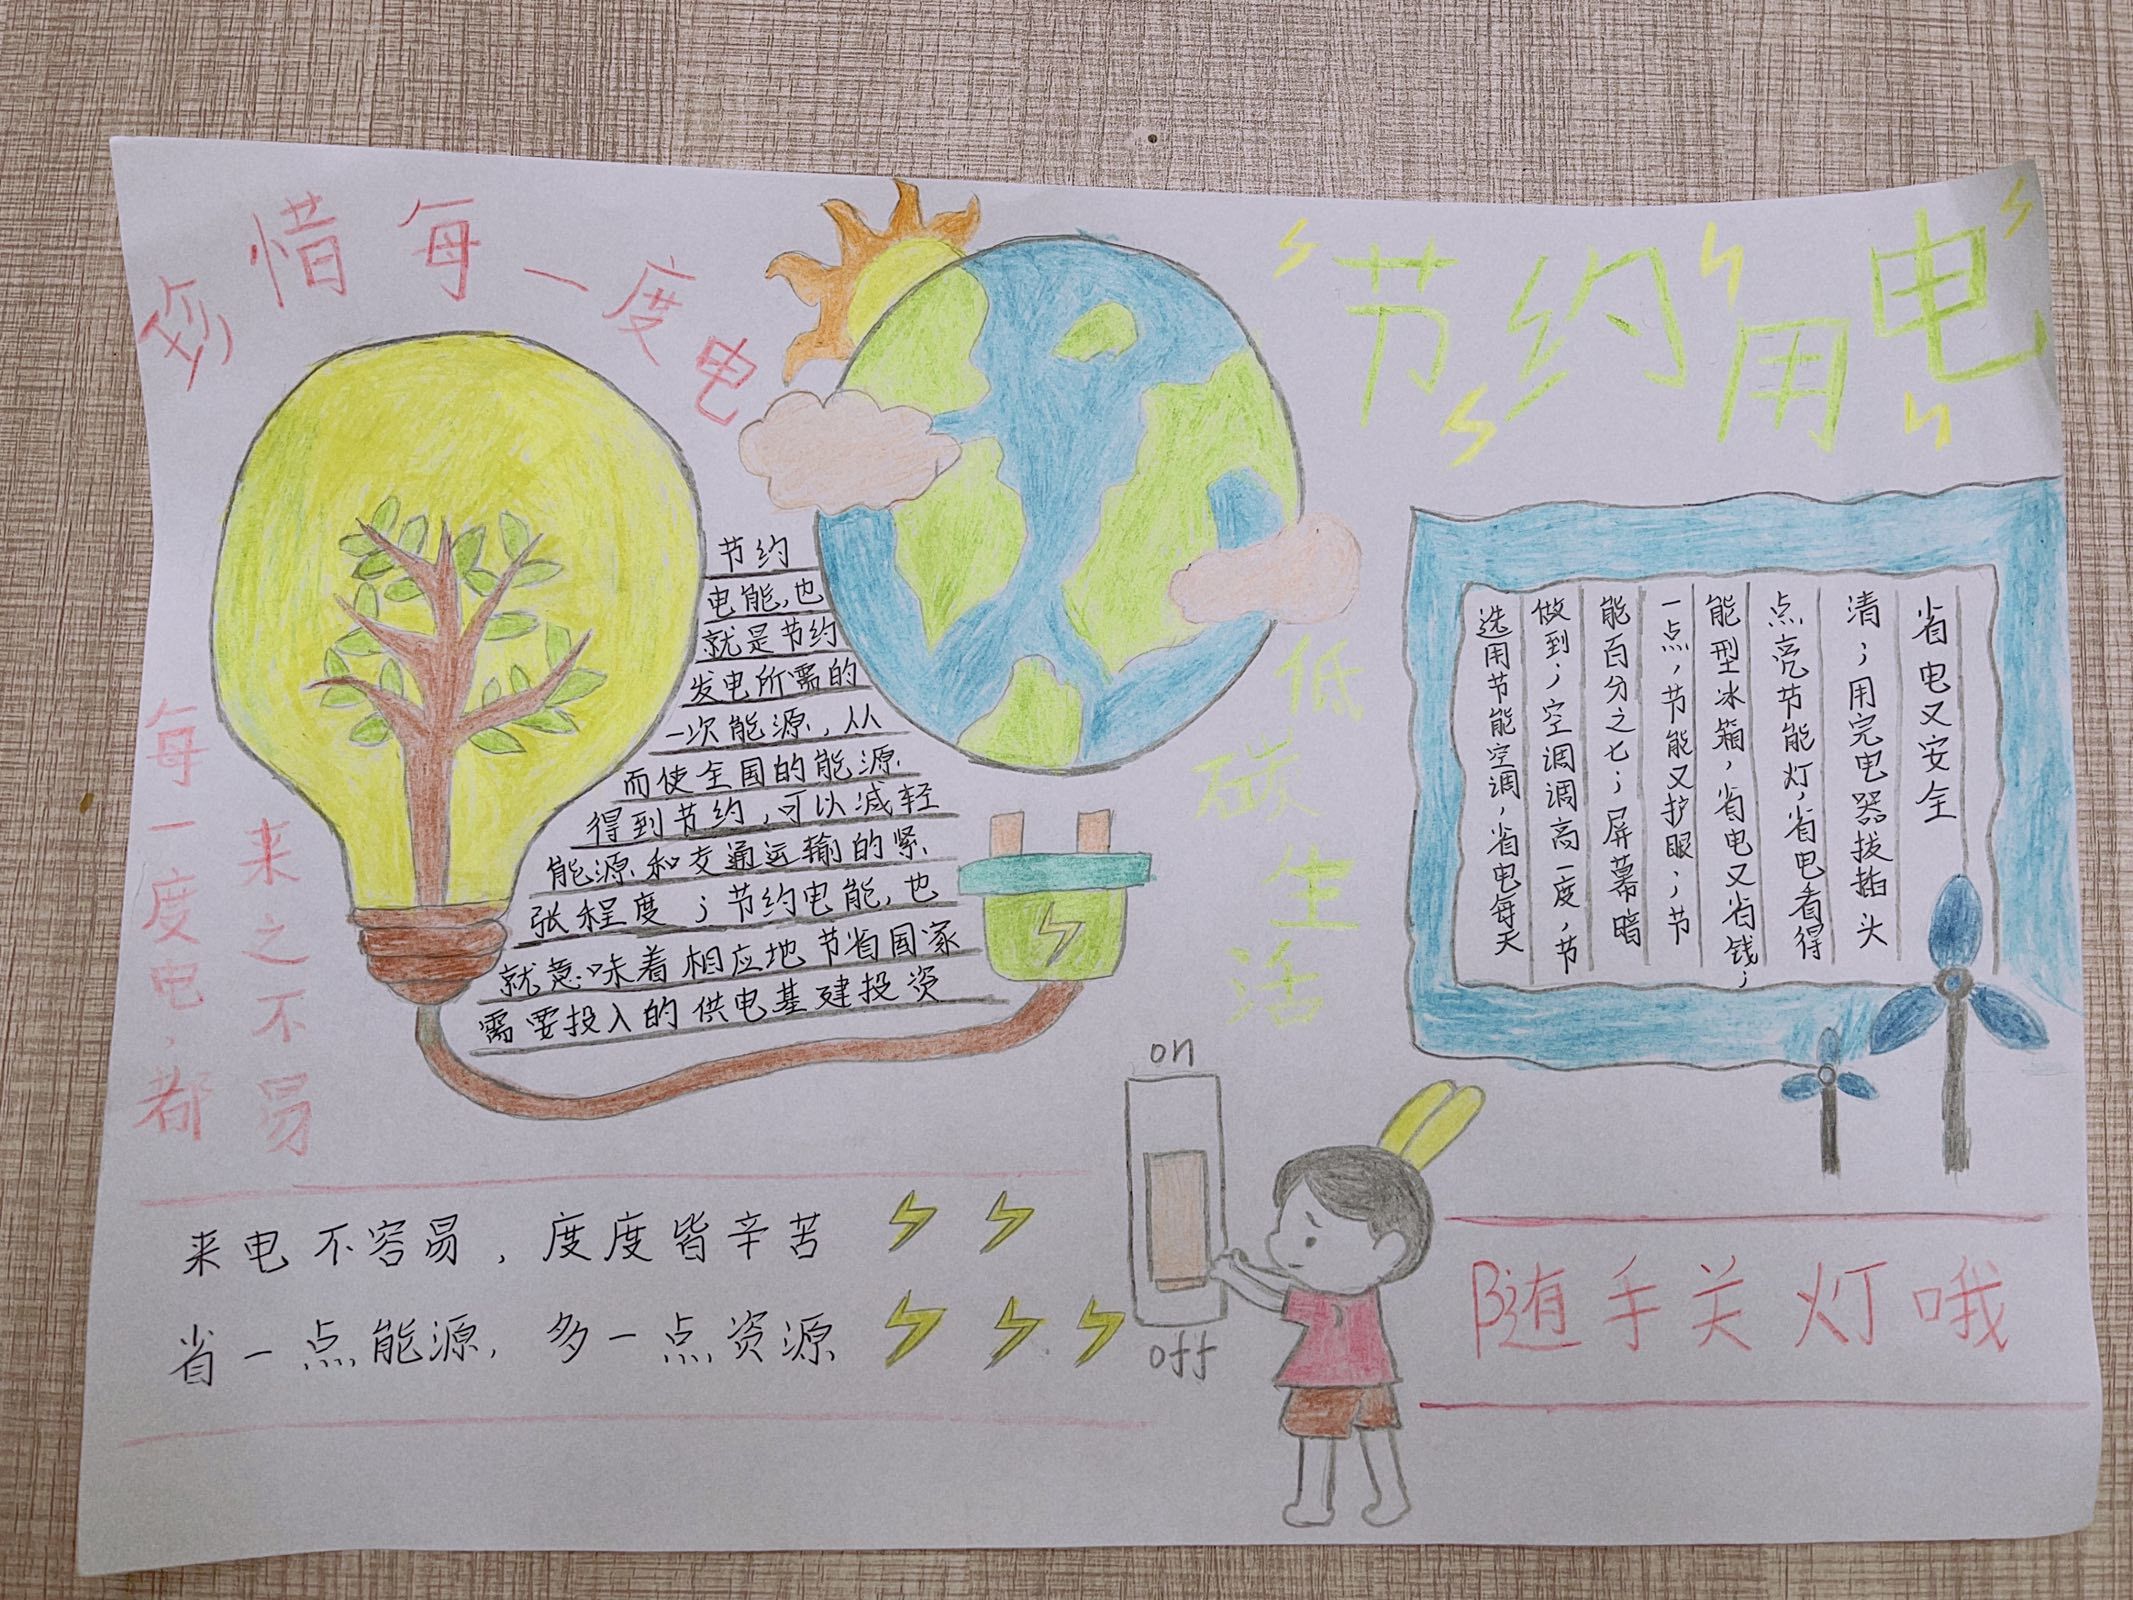 珍惜每一度电
节约用电
每一度电，都
来之不易
节约
电能，也
就是节约
发电所需的
一次能源，从
而使全国的能源
得到节约，可以减轻
能源和交通运输的紧
张程度；节约电能，也
就意味着相应地节省国家
需要投入的供电基建投资
低碳生活
选用节能空调，省电每天
做到；空调调高一度，节
能百分之七；屏幕暗
一点，节能又护眼；节
能型冰箱，省电又省钱；
点亮节能灯，省电看得
清；用完电器拔插头
省电又安全
on
off
来电不容易，度度皆辛苦
省一点能源，多一点资源
随手关灯哦